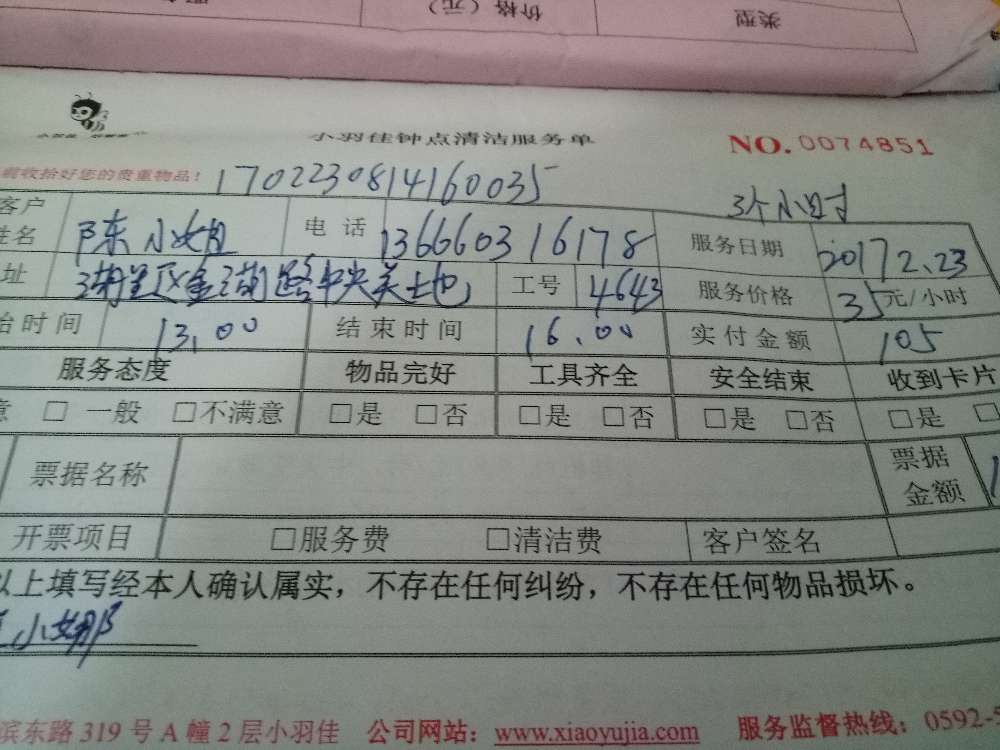 类型
价格（元）
小羽佳钟点清洁服务单
NO. 0074851
前收拾好您的贵重物品！
1702230814160035
3个小时
客户
姓名
陈小姐
电 话
136660316178
服务日期
2017 2.23
址
湖里区金湖路中央美地
工号
4643
服务价格
35元/小时
始时间
13.00
结束时间
16.00
实付金额
105
服务态度 物品完好 工具齐全 安全结束 收到卡片
意 □ 一般 □不满意 □是 □否 □是 □否 □是 □否 □是 □
票据名称
票据
金额
开票项目 □服务费 □清洁费 客户签名
以上填写经本人确认属实，不存在任何纠纷，不存在任何物品损坏。
小娜
滨东路 319 号 A 幢 2 层小羽佳 公司网站：www.xiaoyujia.com 服务监督热线：0592-5